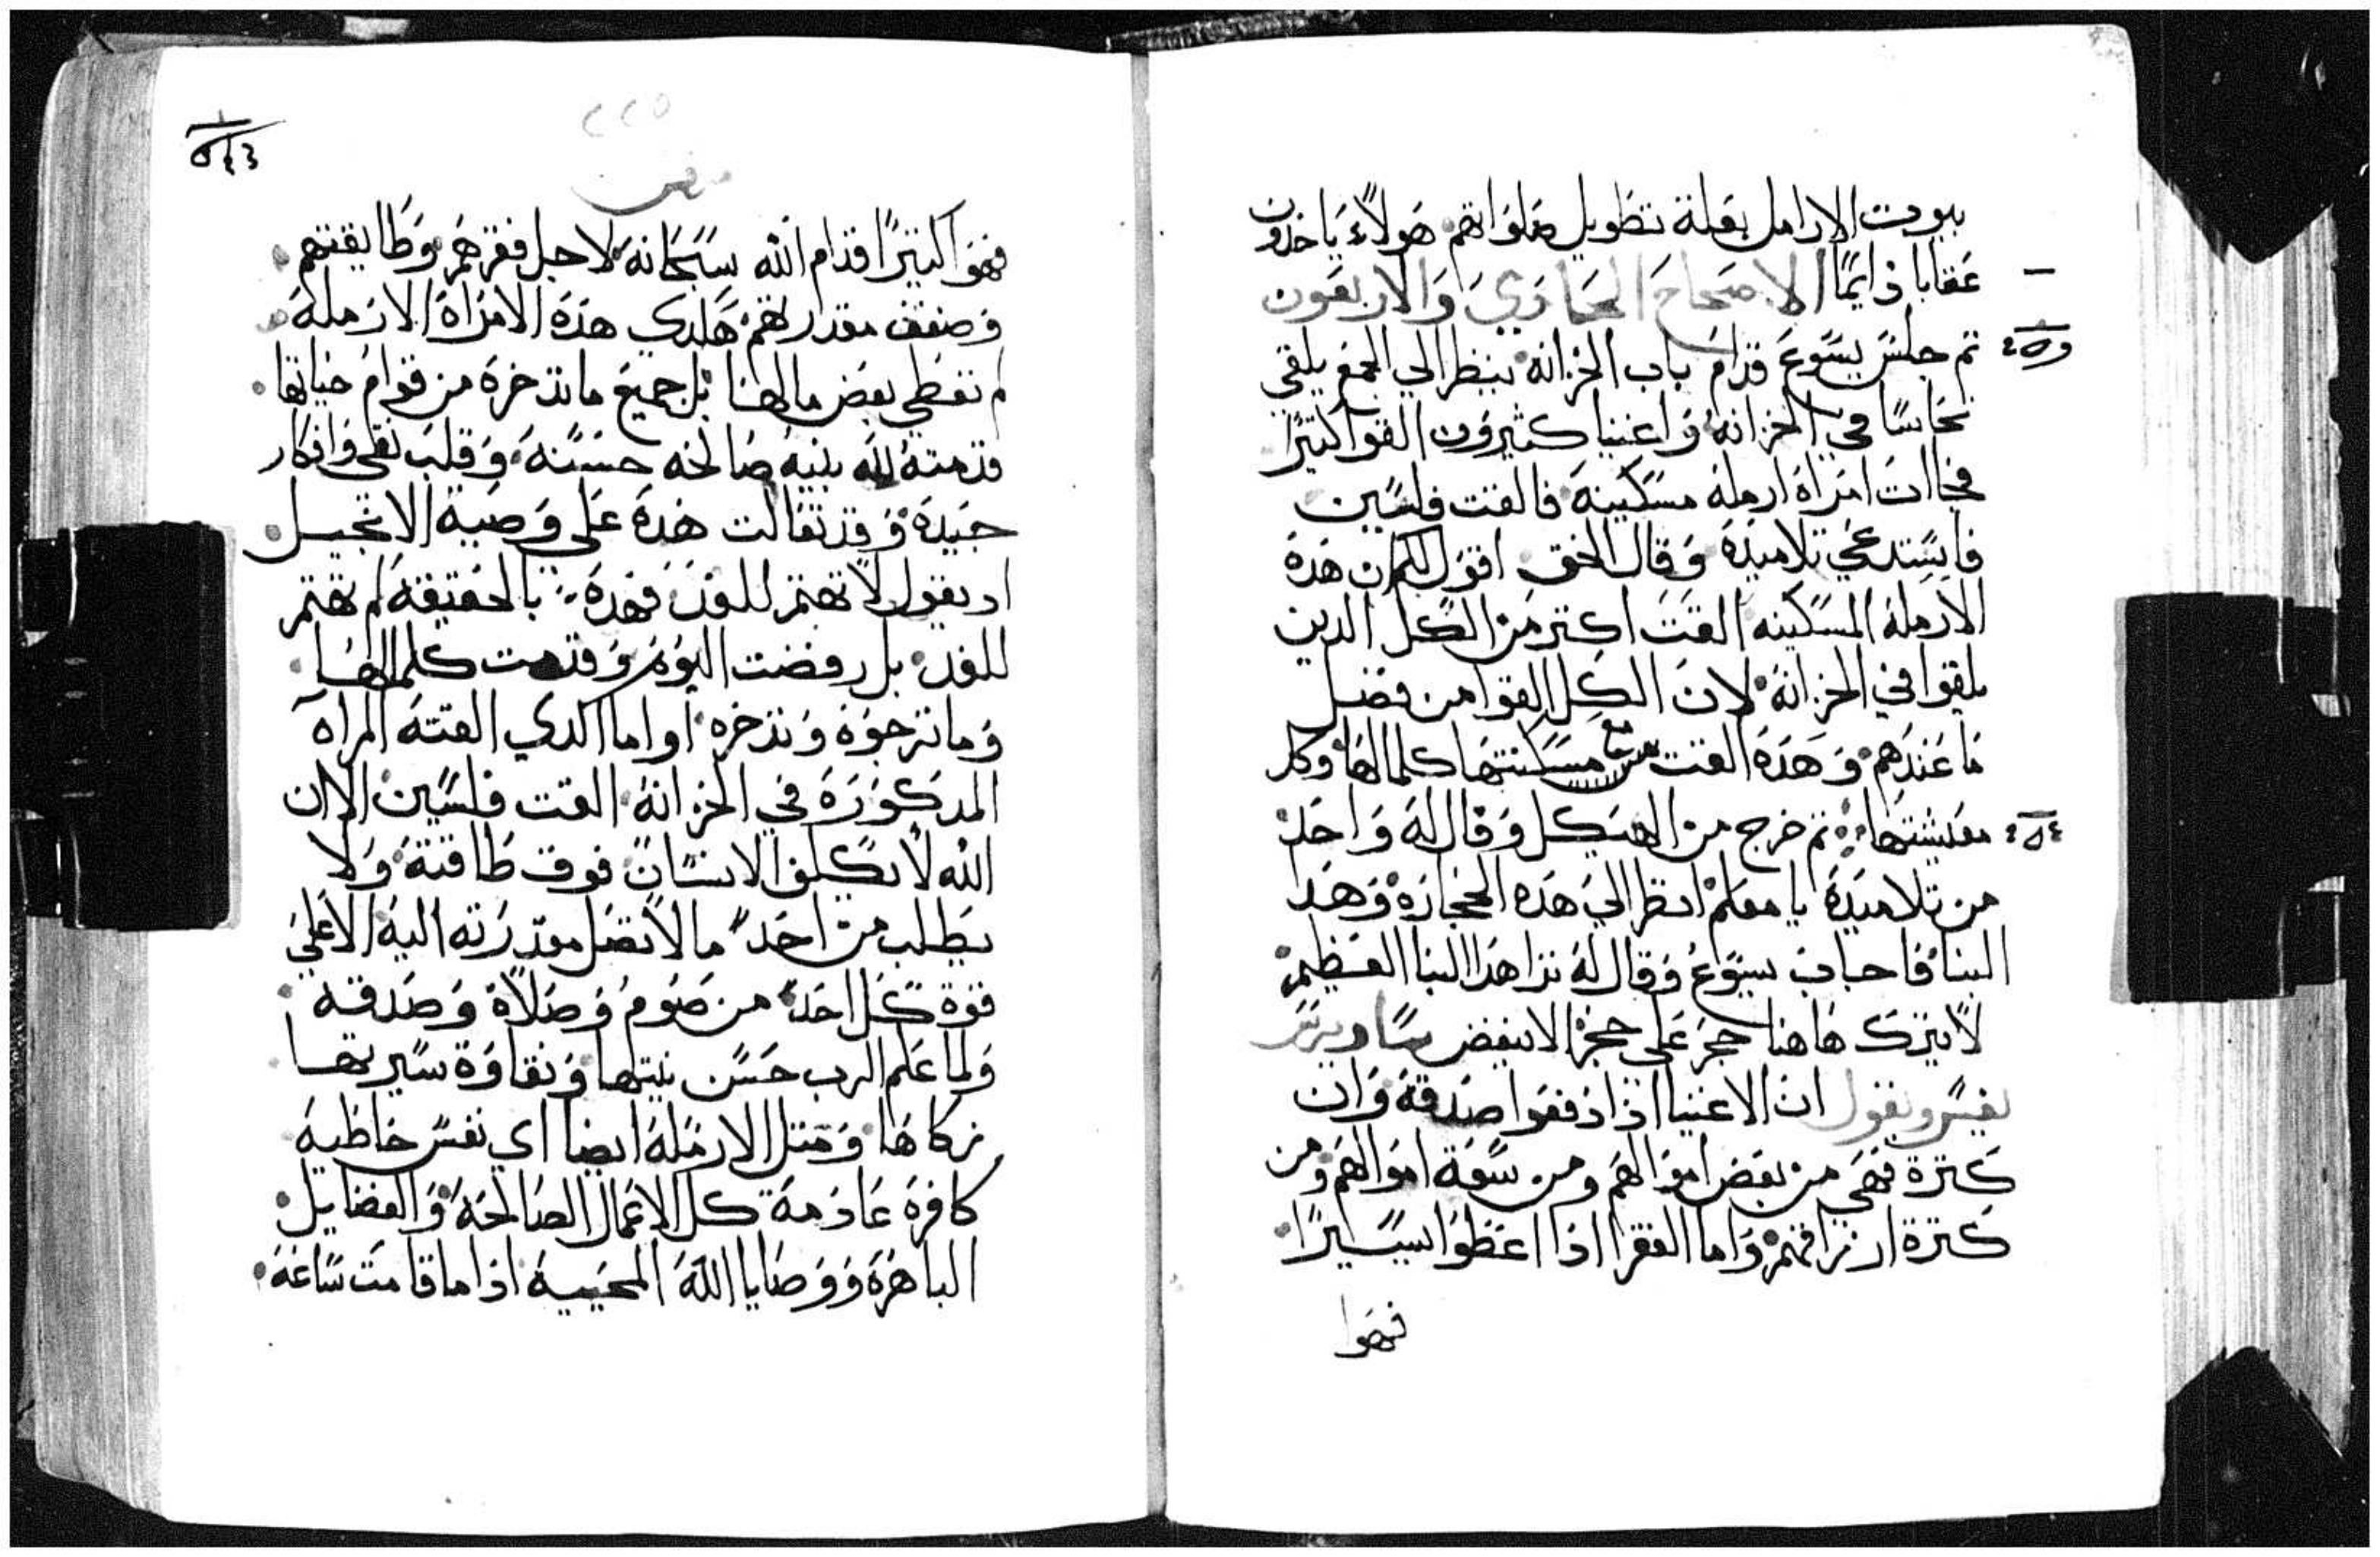 بيوت الارامل بعلة تطويل صلواتهم هولاء ياخدون
عقابا دايما الاصحاح الحادي والاربعون
تم جلس يسوع قدام باب الخزانه ينظر الي الجمع يلقي
نحاسا في الخزانه واغنيا كثيرون القوا كتيرا
فجاات امراة ارمله مسكينه فالقت فلسين
فاستدعي تلاميده وقال الحق اقول لكم ان هده
الارمله المسكينه القت اكتر من الكل الدين
يلقوا في الخزانة لان الكل القوا من فضل
ما عندهم وهده القت مع مسكنتها كلمالها وكل
معيشتها تم خرج من الهيكل وقال له واحد
من تلاميده يا معلم انظر الي هده الحجاره وهدا
البنا فاجاب يسوع وقال له ترا هدا البنا العظيم
لا يترك هاهنا حجر علي حجر الا ينقض ساويرس
يفسر ويقول ان الاغنيا اذا دفعوا صدقة وان
كترة فهي من بعض اموالهم ومن سعة اموالهم ومن
كترة ارزاقهم واما الفقرا اذا اعطوا يسيرا
فهوا
٢٢٥
مرقس
فهوا كتيرا قدام الله سبحانه لاجل فقرهم وطايقتهم
وضعف مقدارتهم هكدي هده الامراة الارمله
لم تعطي بعض مالها بل جميع ما تدخره من قوام حياتها
قدمته لله بنيه صالحه حسنه وقلب نقي وافكار
جيدة وقد تقالت هده علي وصية الانجيل
اد يقول لا تهتم للغد فهده بالحقيقة لم تهتم
للغد بل رفضت اليوم وقدمت كلمالها
وما ترجوه وتدخره واما الدي القته المراه
المدكوره في الخزانة القت فلسين لان
الله لا يكلف الانسان فوق طاقته ولا
يطلب من احد ما لا تصل مقدرته اليه الا علي
قوة كل احد من صوم وصلاة وصدقه
ولما علم الرب حسن نيتها ونقاوة سيرتها
زكاها ومتل الارملة ايضا اي نفس خاطية
كافره عادمة كل الاعمال الصالحة والفضايل
الباهره ووصايا الله المحييه اذا ما قامت ساعه